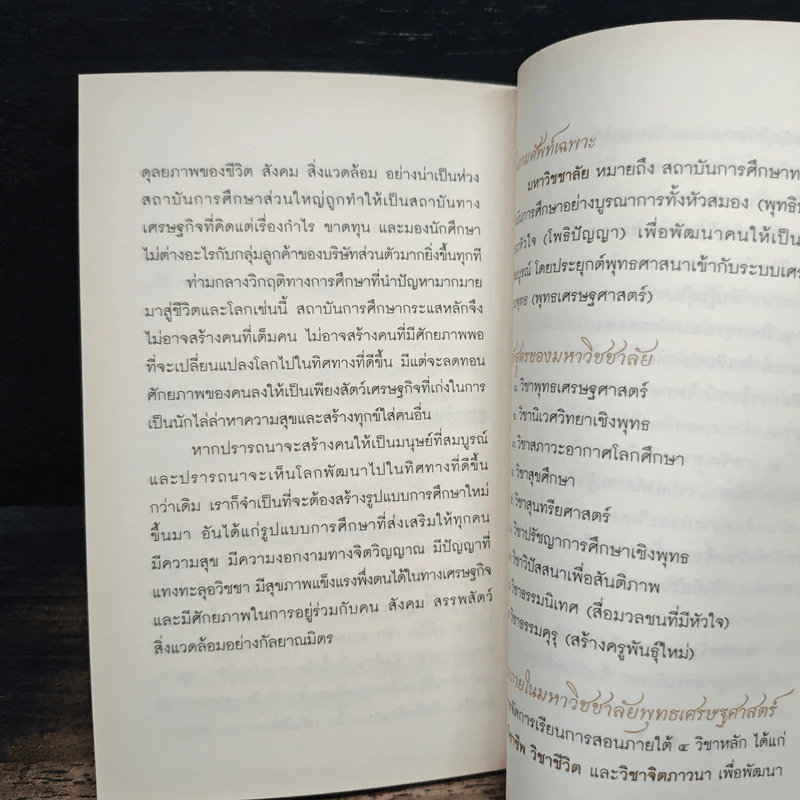 ดุลยภาพของชีวิต สังคม สิ่งแวดล้อม อย่างน่าเป็นห่วง
สถาบันการศึกษาส่วนใหญ่ถูกทำให้เป็นสถาบันทาง
เศรษฐกิจที่คิดแต่เรื่องกำไร ขาดทุน และมองนักศึกษา
ไม่ต่างอะไรกับกลุ่มลูกค้าของบริษัทส่วนตัวมากยิ่งขึ้นทุกที
ท่ามกลางวิกฤติทางการศึกษาที่นำปัญหามากมาย
มาสู่ชีวิตและโลกเช่นนี้ สถาบันการศึกษากระแสหลักจึง
ไม่อาจสร้างคนที่เต็มคน ไม่อาจสร้างคนที่มีศักยภาพพอ
ที่จะเปลี่ยนแปลงโลกไปในทิศทางที่ดีขึ้น มีแต่จะลดทอน
ศักยภาพของคนลงให้เป็นเพียงสัตว์เศรษฐกิจที่เก่งในการ
เป็นนักไล่ล่าหาความสุขและสร้างทุกข์ใส่คนอื่น
หากปรารถนาจะสร้างคนให้เป็นมนุษย์ที่สมบูรณ์
และปรารถนาจะเห็นโลกพัฒนาไปในทิศทางที่ดีขึ้น
กว่าเดิม เราก็จำเป็นที่จะต้องสร้างรูปแบบการศึกษาใหม่
ขึ้นมา อันได้แก่รูปแบบการศึกษาที่ส่งเสริมให้ทุกคน
มีความสุข มีความงอกงามทางจิตวิญญาณ มีปัญญาที่
แทงทะลุอวิชชา มีสุขภาพแข็งแรงพึ่งตนได้ในทางเศรษฐกิจ
และมีศักยภาพในการอยู่ร่วมกับคน สังคม สรรพสัตว์
สิ่งแวดล้อมอย่างกัลยาณมิตร
ามศัพท์เฉพาะ
มหาวิชชาลัย หมายถึง สถาบันการศึกษาท
นการศึกษาอย่างบูรณาการทั้งหัวสมอง (พุทธิ
หัวใจ (โพธิปัญญา) เพื่อพัฒนาคนให้เป็น
บูรณ์ โดยประยุกต์พุทธศาสนาเข้ากับระบบเศร
พุทธ (พุทธเศรษฐศาสตร์)
สูตรของมหาวิชชาลัย
วิชาพุทธเศรษฐศาสตร์
วิชานิเวศวิทยาเชิงพุทธ
วิชาสภาวะอากาศโลกศึกษา
วิชาสุขศึกษา
วิชาสุนทรียศาสตร์
วิชาปรัชญาการศึกษาเชิงพุทธ
วิชาวิปัสสนาเพื่อสันติภาพ
วิชาธรรมนิเทศ (สื่อมวลชนที่มีหัวใจ)
วิชาธรรมคุรุ (สร้างครูพันธุ์ใหม่)
ภายในมหาวิชชาลัยพุทธเศรษฐศาสตร์
จัดการเรียนการสอนภายใต้ ๔ วิชาหลัก ได้แก่
ชีพ วิชาชีวิต และวิชาจิตภาวนา เพื่อพัฒนา